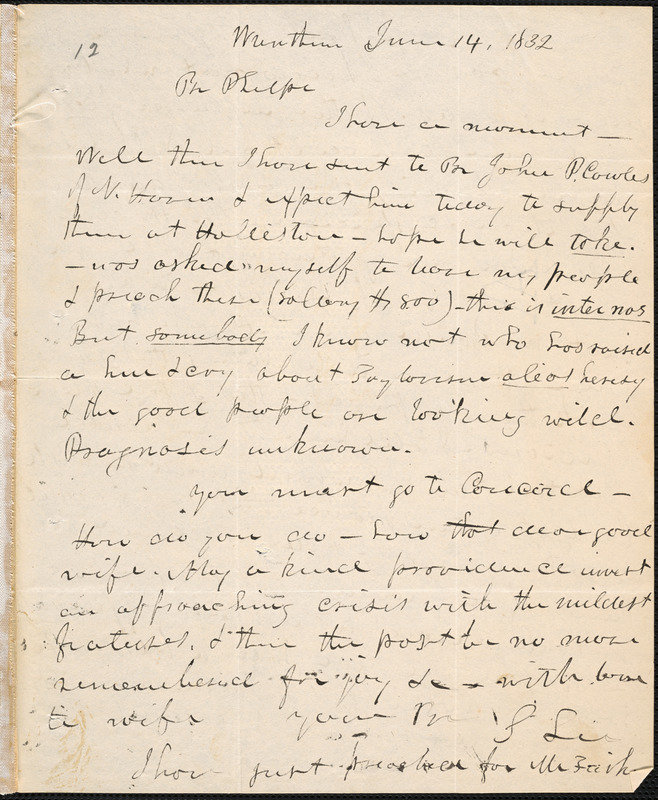 12
Wrentham June 14, 1832
Br Phelps
I have a moment —
Well then I have sent to Br John P. Cowles
of N. Haven & expect him today to supply
them at Holliston — hope he will take.
— was asked myself to leave my people
& preach there (sallery $800) — this is inter nos
But somebody I know not who has raised
a hue & cry about Taylorism alias heresy
& the good people are looking wild.
Prognosis unknown.
you must go to Concord —
How do you do — how that dear good
wife. May a kind providence invest
an approaching crisis with the mildest
features, & then the past be no more
remembered for joy &c — with love
to wife your Br S Lee
I have just preached for Mr Fisk